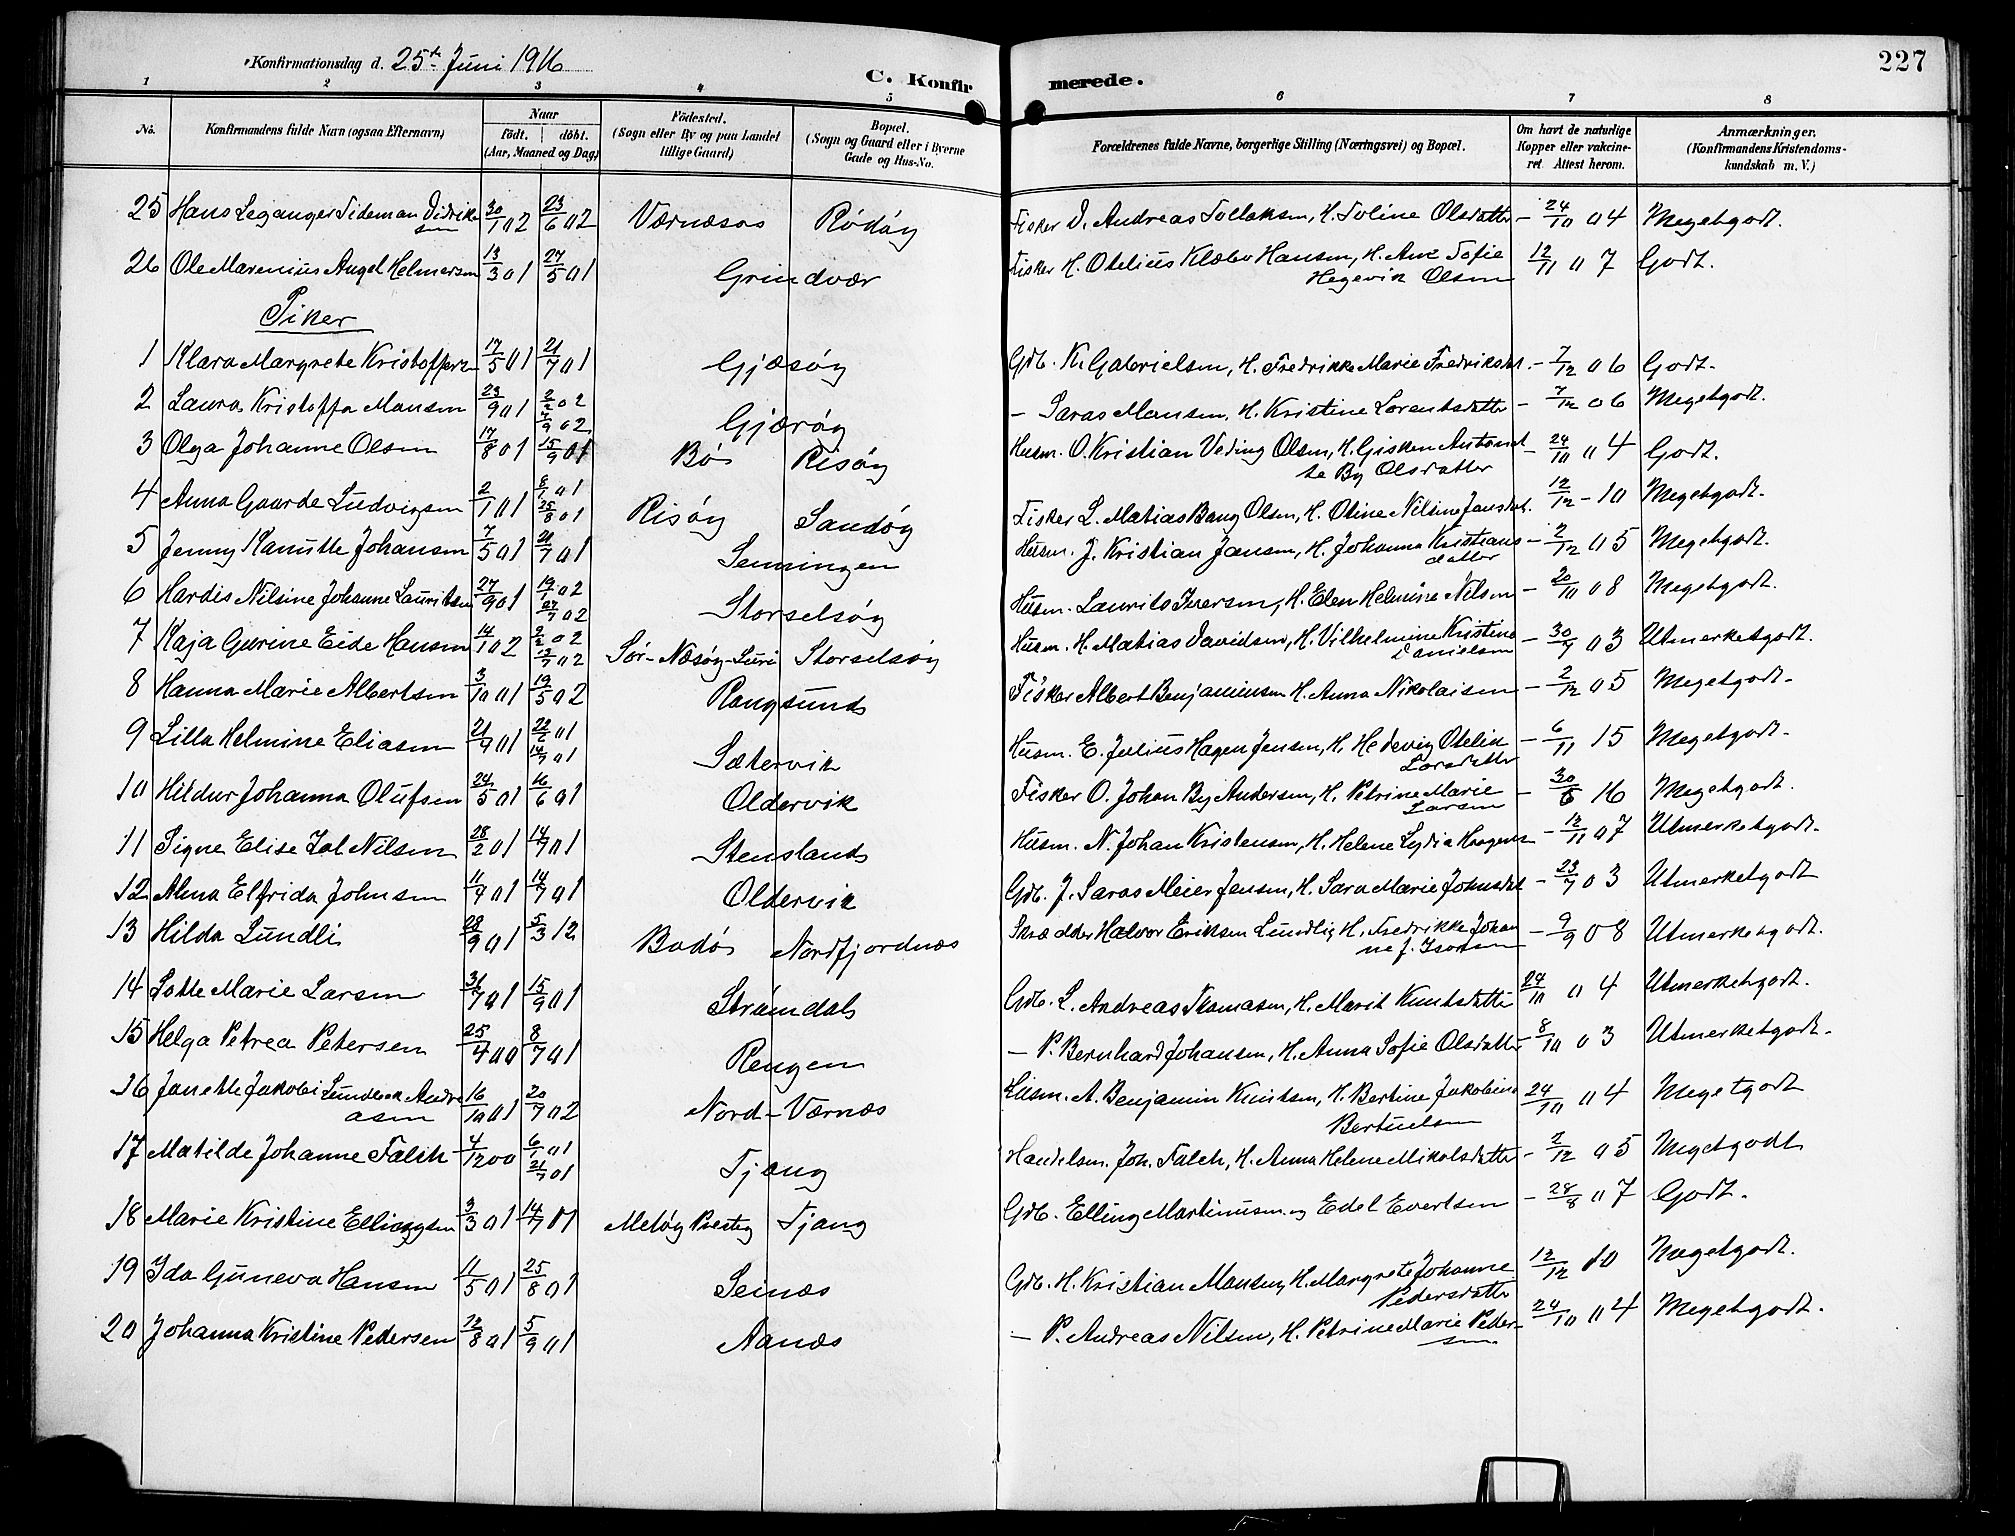 Konfirmationsdag d. 25de Juni 1916
C. Konfirmerede.
227
1 2 3 4 5 6 7 8
No.
Konfirmandens fulde Navn (ogsaa Efternavn)
Naar
födt. döbt.
(Aar, Maaned og Dag)
Födested.
(Sogn eller By og paa Landet
tillige Gaard)
Bopæl.
(Sogn og Gaard eller i Byerne
Gade og Hus-No.
Forældrenes fulde Navne, borgerlige Stilling (Næringsvei) og Bopæl.
Om havt de naturlige
Kopper eller vakcine-
ret. Attest herom.
Anmærkninger.
(Konfirmandens Kristendoms-
kundskab m. V.)
25 Hans Leganger Tideman Didriksen 30/1 02 23/6 02 Værnæsos Rødøy Fisker D. Andreas Tollaksen, H. Toline Olsdatter - 24/10 04 Megetgodt.
26 Ole Marenius Angel Helmersen 13/3 01 27/5 01 Grindvær Fisker H. Otelius Klæbo Hansen, H. Ane Sofie Hegevik Olsen 12/11 07 Godt.
Piker
1 Klara Margrete Kristoffers 17/5 01 21/7 01 Gjæsøy Gdb. K. Gabrielsen, H. Fredrikke Marie Fredriksdt. - 7/12 06 Godt.
2 Laura Kristoffa Mansen 23/9 01 2/2 02 7/9 02 Gjærøy - Saras Mansen, H. Kristine Lorentsdatter - 7/12 06 Megetgodt.
3 Olga Johanne Olsen 17/8 01 15/9 01 Bø Risøy Husm. O. Kristian Veding Olsen, H. Gisken Antonette By Olsdatter - 24/10 04 Godt.
4 Anna Gaarde Ludvigsen 2/1 01 8/1 01 25/8 01 Risøy Sandøy Fisker L. Matias Bang Olsen, H. Oline Nilsine Jansdt. 12/12 - 10 Megetgodt.
5 Jenny Kanutte Johansen 7/5 01 21/7 01 Senningen Husm. J. Kristian Jansen, H. Johanna Kristiansdatter - 2/12 05 Megetgodt.
6 Hardis Nilsine Johanne Lauritsen 27/9 01 19/1 02 27/7 02 Storselsøy Husm. Laurits Iversen, H. Elen Helmine Nilsen - 20/11 08 Megetgodt.
7 Kaja Gurine Eide Hansen 14/1 02 2/2 02 13/7 02 Sør-Næsøy-Luri Storselsøy Husm. H. Matias Davidsen, H. Vilhelmine Kristine Danielsen - 30/7 03 Utmerketgodt.
8 Hanna Marie Albertsen 3/10 01 19/5 02 Rangsunds Fisker Albert Benjaminsen H. Anna Nikolaisen - 2/12 05 Megetgodt.
9 Lilla Helmine Eliasen 21/1 01 22/2 01 14/7 01 Sætervik Husm. E. Julius Hagen Jensen, H. Hedevig Otelia Larsdatter - 6/11 15 Megetgodt.
10 Hildur Johanna Olufsen 24/5 01 16/6 01 Oldervik Fisker O. Johan By Andersen, H. Petrine Marie Larsen - 30/6 16 Megetgodt.
11 Signe Elise Zal Nilsen 28/2 01 14/7 01 Stenslands Husm. N. Johan Kristensen, H. Helene Lydia Haagens - 12/11 07 Utmerketgodt.
12 Alma Elfrida Johnsen 11/4 01 14/7 01 Oldervik Gdb. J. Saras Meier Jensen, H. Sara Marie Johnsdt - 23/7 03 Utmerketgodt
13 Hilda Lundli 28/9 01 5/3 12 Bodø Nordfjordnæs Skrædder Halvor Eriksen Lundli, H. Fredrikke Johanne J. - 9/9 08 Utmerketgodt.
14 Lotte Marie Larsen 31/7 01 15/9 01 Strømdals Gdb. L. Andreas Tomasen, H. Marit Knutsdatter 24/10 04 Utmerketgodt.
15 Helga Petrea Petersen 25/4 00 8/7 01 Rengen - P. Bernhard Johansen, H. Anna Sofie Olsdatter 8/10 03 Utmerketgodt.
16 Janette Jakobi Andreasen 16/10 01 20/7 02 Nord-Værnæs Husm. A. Benjamin Knutsen, H. Bertine Jakobine Bertuelsen 24/10 04 Megetgodt
17 Matilde Johanne Falch 4/12 00 6/1 01 21/7 01 Tjæng Handelsm. Joh. Falch, H. Anna Helene Mikalsdatter - 2/12 05 Megetgodt
18 Marie Kristine Ellingsen 3/3 01 14/7 01 Meløy Prestg Tjæng Gdb. Elling Martinusen og Edel Evertsen - 28/8 07 Godt.
19 Ida Guneva Hansen 11/5 01 25/8 01 Seinæs Gdb. H. Kristian Mansen, H. Margrete Johanne Pedersdatter 12/12 10 Megetgodt.
20 Johanna Kristine Pedersen 12/8 01 5/9 01 Aanæs - P. Andreas Nilsen, H. Petrine Marie Pedersen 24/10 04 Megetgodt.